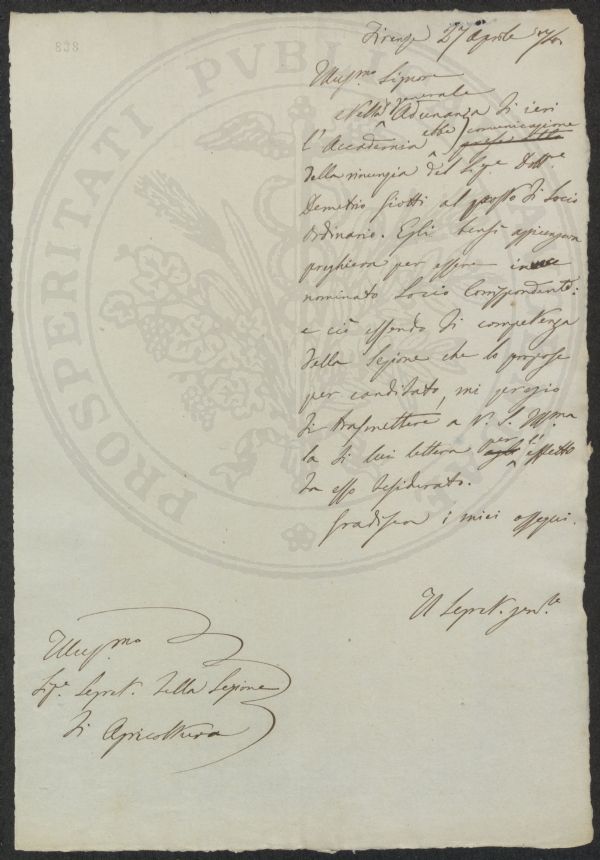 Firenze 27 Aprile
Illuss.mo Signore
Nella generale Adunanza di ieri
l'Accademia ebbe comunicazione
della rinunzia del Sig.e Dott.e
Demetrio Giotti al posto di Socio
Ordinario. Egli bensì aggiungeva
preghiera per essere invece
nominato Socio Corrispondente:
e ciò essendo di competenza
della Sezione che lo propose
per candidato, mi pregio
di trasmettere a V. S. Ill.ma
la di lui lettera per l'effetto
da esso desiderato.
Gradisca i miei ossequi.
Il Segret. gen.le
Illuss.mo
Sig.e Segret. della Sezione
di Agricoltura
PROSPERITATI PUBLICAE